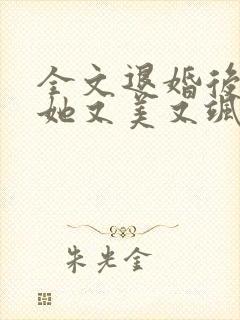 全文退婚後
她又美又颯
朱光金